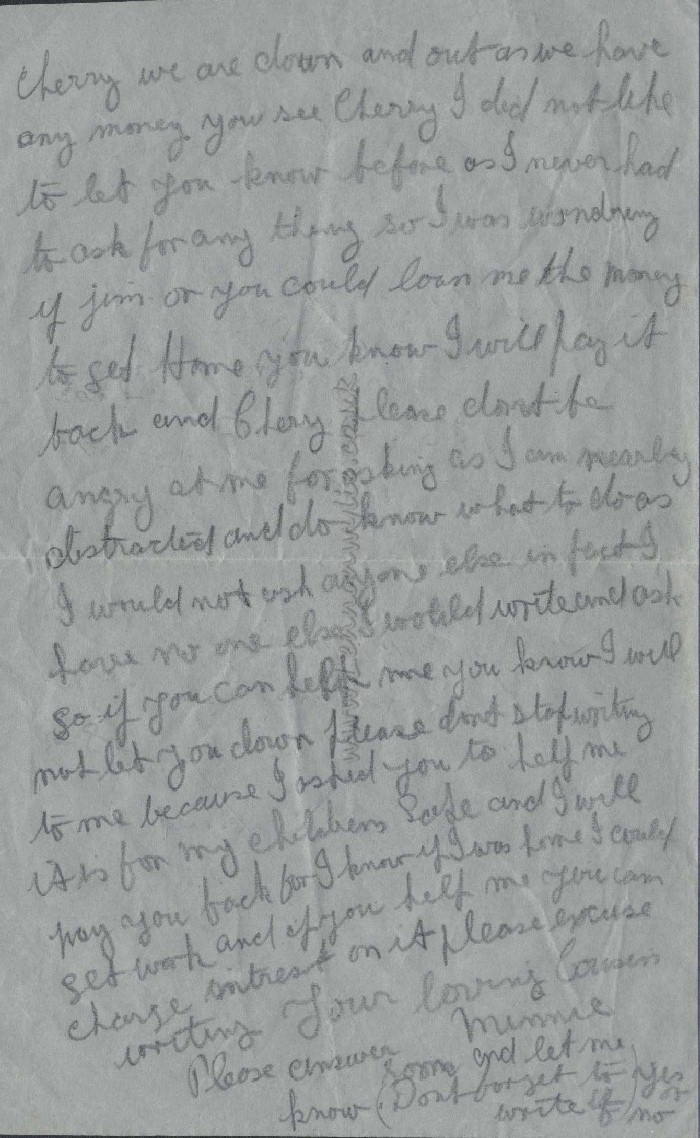 Cherry we are down and out as we have
any money you see Cherry I did not like
to let you know before as I never had
to ask for any thing so I was wondring
if jim or you could loan me the money
to get Home you know I will pay it
back and Chery please dont be
angry at me for asking as I am nearly
distracted and do know what to do as
I would not ask anyone else in fact I
have no one else I would write and ask
so if you can help me you know I will
not let you down please dont stop writing
to me because I asked you to help me
it is for my childens safe and I will
pay you back for I know if I was home I could
get work and if you help me you can
charge intrest on it please excuse
writing Your loving Cousin
Minnie
Please answer soon and let me
know (Dont forget to write if) yes or no